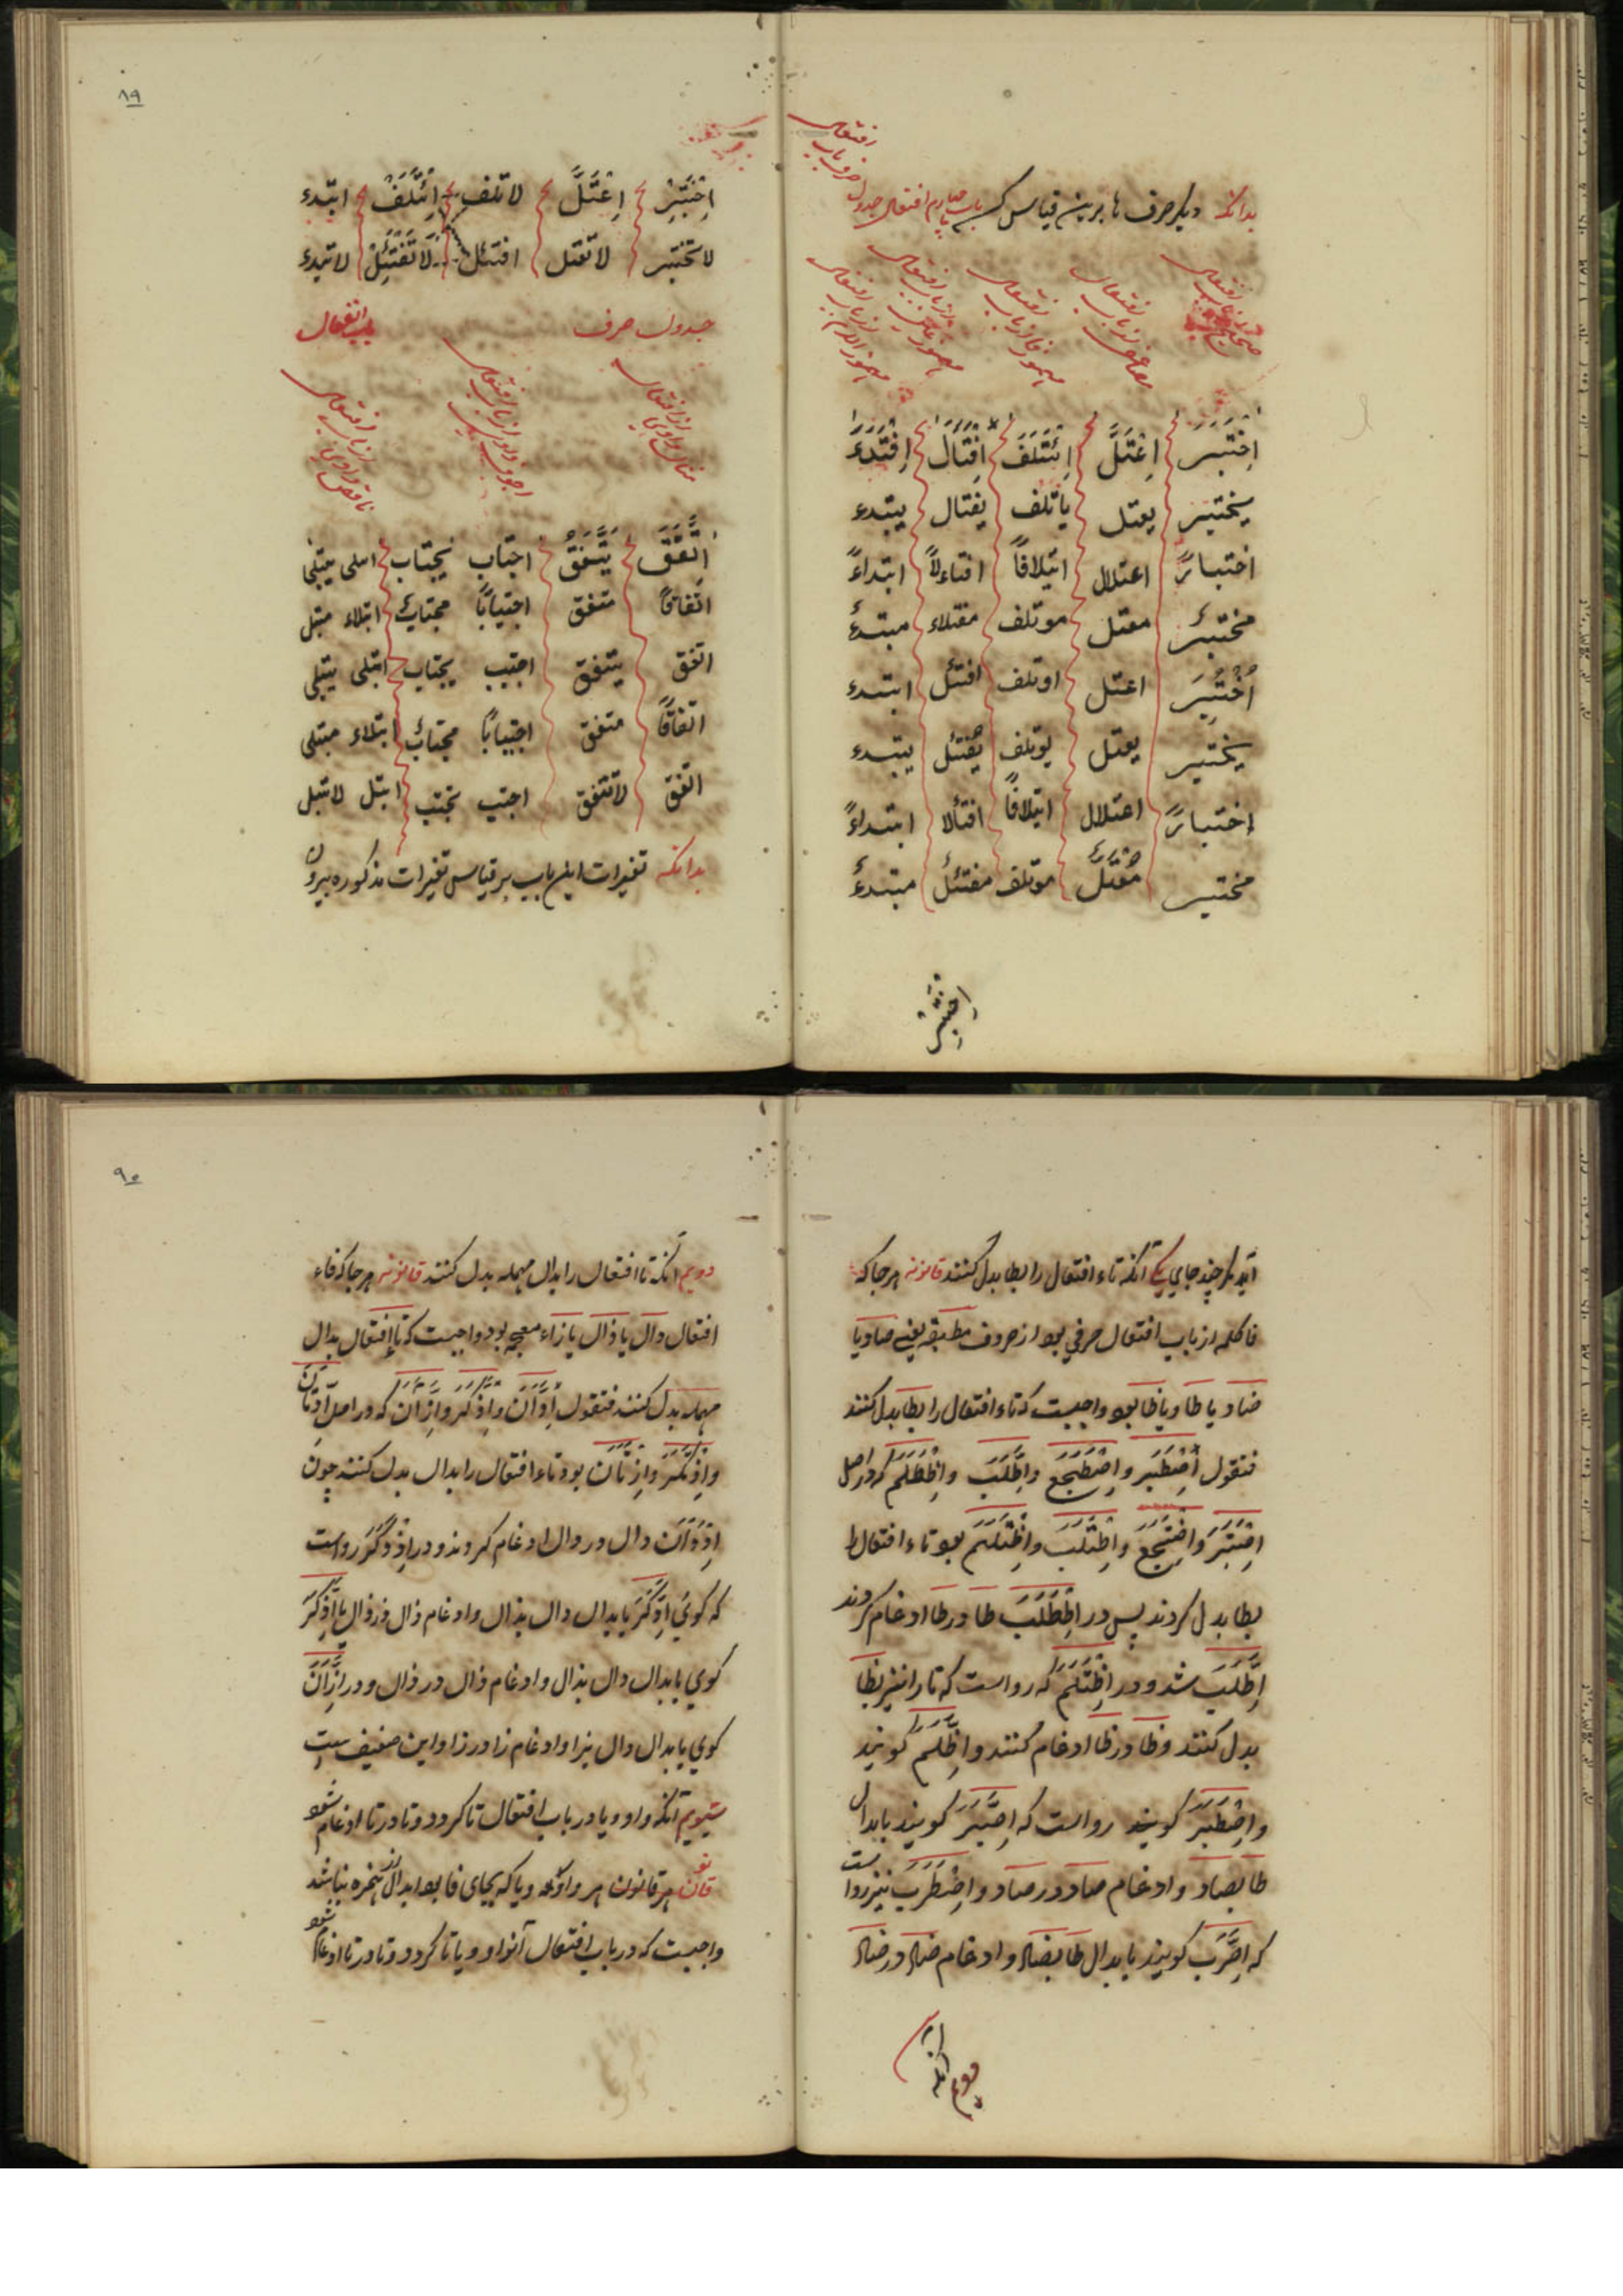 بدانکه دیگر صرف ها برین قیاس کن باب چهارم افتعال جدول صرف باب افتعال
صحیح از باب افتعال مضاعف از باب افتعال مهموز فا از باب افتعال مهموز عین از باب افتعال مهموز اللام از باب افتعال
اِخْتَبَرَ اِعْتَلَّ اِئْتَلَفَ اِفْتَأَلَ اِفْتَدَءَ
یختبر یعتل یاتلف یفتال یبتدء
اختباراً اعتلال ایتلافاً افتاءلاً ابتداءً
مختبر معتل موتلف مفتلاء مبتدءٌ
اُخْتُبِرَ اعتل اوتلف افتئل ابتدء
یختبر یعتل یوتلف یفتئل یبتدء
اختباراً اعتلال ایتلافاً افتألا ابتداءً
مختبر مُعْتَلٌ موتلف مفتئلٌ مبتدءٌ
اِخْتَبِرْ
۸۹
اِخْتَبِرْ اِعْتَلَّ لاتلف اِئْتَلِفْ ابتدء
لاتختبر لاتعتل افتئل لَاتَفْتَئِلْ لاتبتدء
جدول صرف باب افتعال
مثال واوی از افتعال اجوف واوی از باب افتعال ناقص واوی از باب افتعال
اِتَّفَقَ یَتَّفِقُ اجتاب یجتاب ابتلی یبتلی
اتفاقاً متفق اجتیاباً مجتاب ابتلاء مبتل
اتفق یتفق اجتیب یجتاب ابتلی یبتلی
اتفاقاً متفق اجتیاباً مجتاب ابتلاء مبتلی
اتفق لاتتفق اجتب تجتب ابتل لاتبتل
بدانکه تغیرات این باب بر قیاس تغیرات مذکوره بیرون
آید مگر چند جای یکی آنکه تاء افتعال را بطا بدل کنند قانونه هر جا که
فا کلمه از باب افتعال حرفی بود از حروف مطبقه یعنی صاد یا
ضاد یا طا و یا ظا بود واجبست که تاء افتعال را بطا بدل کنند
فتقول اِصْطَبَر و اِضْطَجَع و اِطَّلَبَ و اِظْطَلَم که در اصل
اِصْتَبَرَ و اِضْتَجَعَ و اِطْتَلَبَ و اِظْتَلَم بود تاء افتعال را
بطا بدل کردند پس در اِطْطَلَبَ طا در طا ادغام کردند
اِطَّلَبَ شد و در اِظْتَلَمَ که رواست که تا را نیز بظا
بدل کنند و ظا در ظا ادغام کنند و اِظَّلَمَ گویند
و اِصْطَبَرَ گویند رواست که اِصَّبَرَ گویند بابدال
طا بصاد و ادغام صاد در صاد و اِضْطَرَبَ نیز رواست
که اِضَّرَبَ گویند بابدال طا بضاد و ادغام ضاد در ضاد
دویم آنکه
۹۰
دویم آنکه تا افتعال را بدال مهمله بدل کنند قانونه هر جا که فاء
افتعال دال یا ذال یا زاء معجمه بود واجبست که تاء افتعال بدال
مهمله بدل کنند فتقول اِدَّانَ و اِذْدَکَر و اِزْدَانَ که در اصل اِدْتَانَ
و اِذْتَکَرَ و اِزْتَانَ بود تاء افتعال را بدال بدل کنند چون
اِدْدَانَ دال در دال ادغام کردند و در اِذْدَکَرَ رواست
که گوئی اِدَّکَرَ بابدال دال بذال و ادغام ذال در ذال یا اِذَّکَرَ
گوی یا بدال دال بذال و ادغام ذال در ذال و در اِزَّانَ
گوی یا بدال دال بزا و ادغام زا در زا و این ضعیف است
سیوم آنکه واو و یا در باب افتعال تا گردد و تا در تا ادغام شود
قانون هر قانون هر واو که و یا که بجای فا بود ابدال از همزه نباشد
واجبست که در باب افتعال آن واو و یا تا گردد و تا در تا ادغام شود